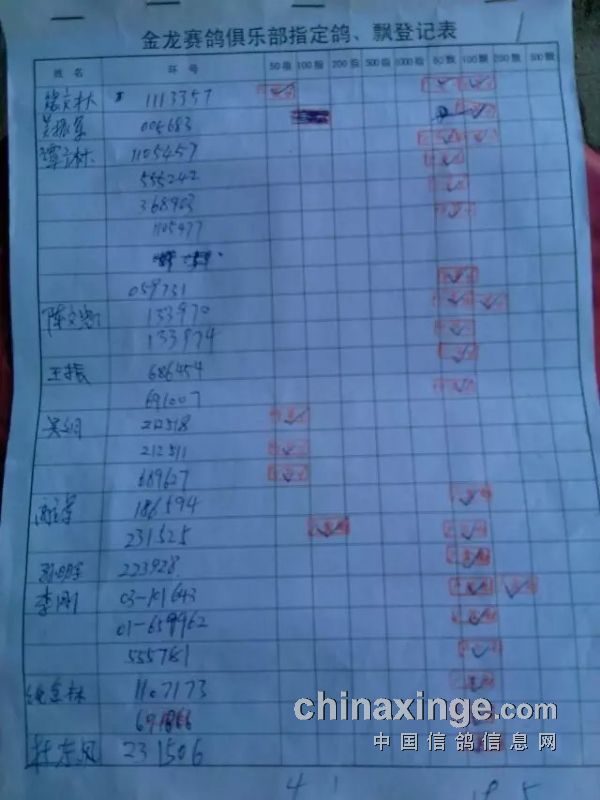 1
金龙赛鸽俱乐部指定鸽、飘登记表
姓名 环号 50指 100指 200指 500指 1000指 50飘 100飘 200飘 500飘
1113357
005683
1105457
555242
368903
1105477
059731
133970
133974
王振 686454
691007
212518
212511
689627
186594
231525
223928
李刚 03-101643
01-659962
555781
1107173
691866
杜东风 231506
4 1
chinaxinge.com
中国信鸽信息网